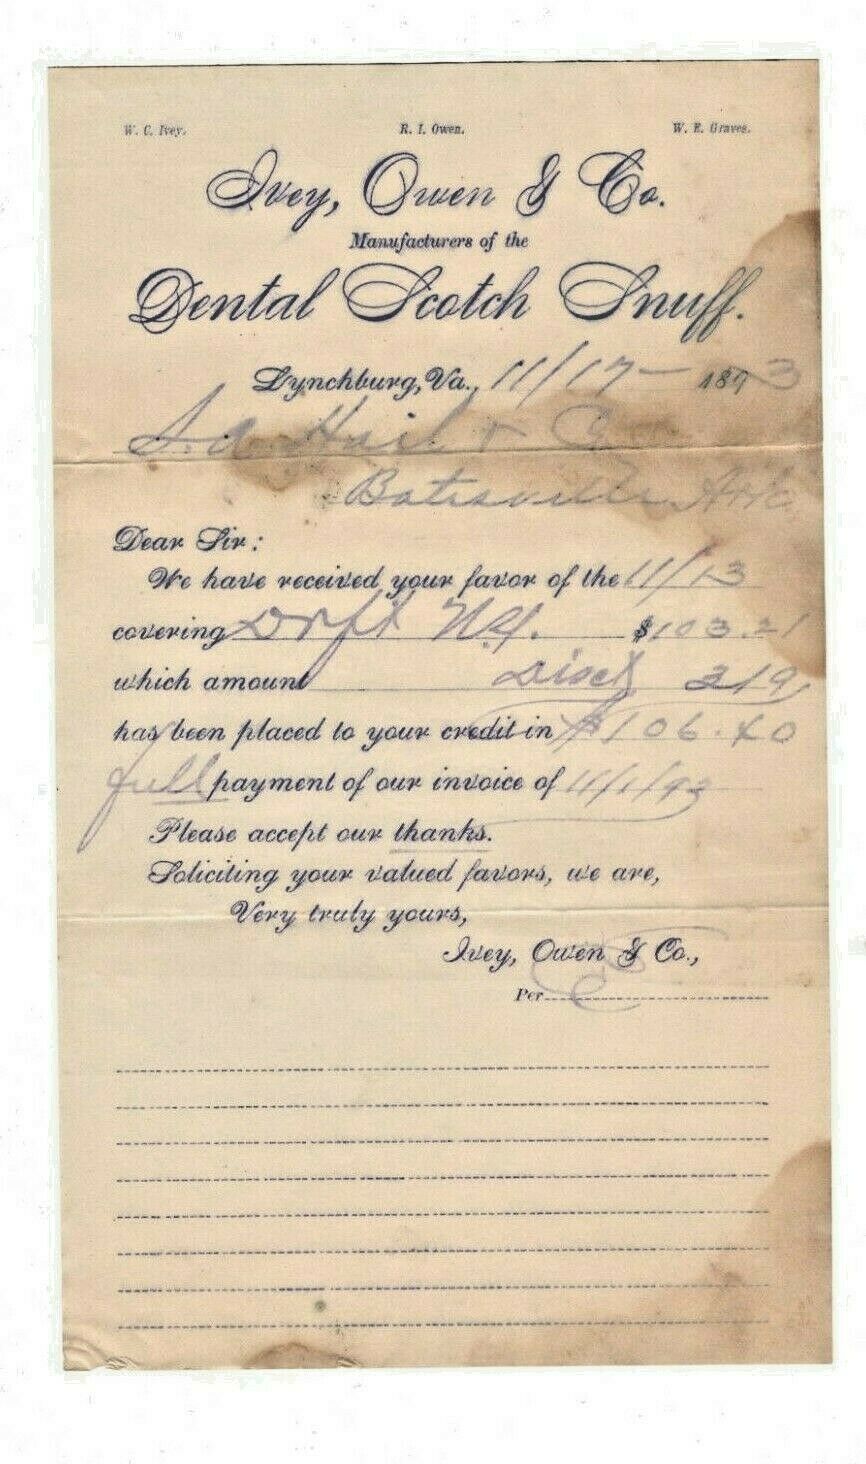 W. C. Ivey. R. I. Owen. W. E. Graves.
Ivey, Owen & Co.
Manufacturers of the
Dental Scotch Snuff.
Lynchburg, Va., 11/17 - 1893
S. A. Hail & Co
Batesville Ark
Dear Sir:
We have received your favor of the 11/13
covering Drft N.Y. $103.21
which amount Disct 319
has been placed to your credit in $106.40
full payment of our invoice of 11/1/93
Please accept our thanks.
Soliciting your valued favors, we are,
Very truly yours,
Ivey, Owen & Co.,
Per